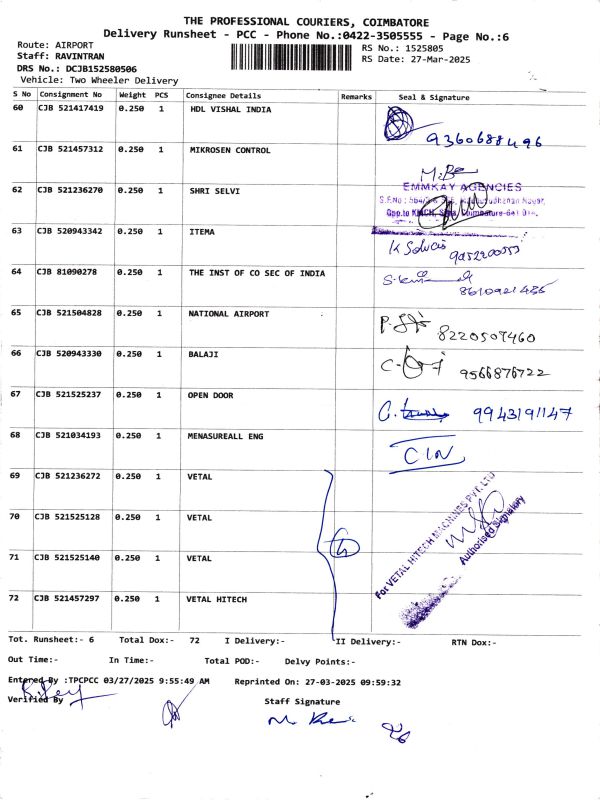 THE PROFESSIONAL COURIERS, COIMBATORE
Delivery Runsheet - PCC - Phone No.:0422-3505555 - Page No.:6
Route: AIRPORT
Staff: RAVINTRAN
RS No.: 1525805
DRS No.: DCJB152580506
RS Date: 27-Mar-2025
Vehicle: Two Wheeler Delivery
S No Consignment No Weight PCS Consignee Details Remarks Seal & Signature
60 CJB 521417419 0.250 1 HDL VISHAL INDIA
9360688496
61 CJB 521457312 0.250 1 MIKROSEN CONTROL
62 CJB 521236270 0.250 1 SHRI SELVI
EMMKAY AGENCIES
63 CJB 520943342 0.250 1 ITEMA
9952200553
64 CJB 81090278 0.250 1 THE INST OF CO SEC OF INDIA
8610921486
65 CJB 521504828 0.250 1 NATIONAL AIRPORT
8220507460
66 CJB 520943330 0.250 1 BALAJI
9566876722
67 CJB 521525237 0.250 1 OPEN DOOR
9943191147
68 CJB 521034193 0.250 1 MENASUREALL ENG
69 CJB 521236272 0.250 1 VETAL
70 CJB 521525128 0.250 1 VETAL
71 CJB 521525140 0.250 1 VETAL
72 CJB 521457297 0.250 1 VETAL HITECH
For VETAL HITECH MACHINES PVT. LTD
Authorised Signatory
Tot. Runsheet:- 6 Total Dox:- 72 I Delivery:- II Delivery:- RTN Dox:-
Out Time:- In Time:- Total POD:- Delvy Points:-
Entered By :TPCPCC 03/27/2025 9:55:49 AM Reprinted On: 27-03-2025 09:59:32
Verified By
Staff Signature